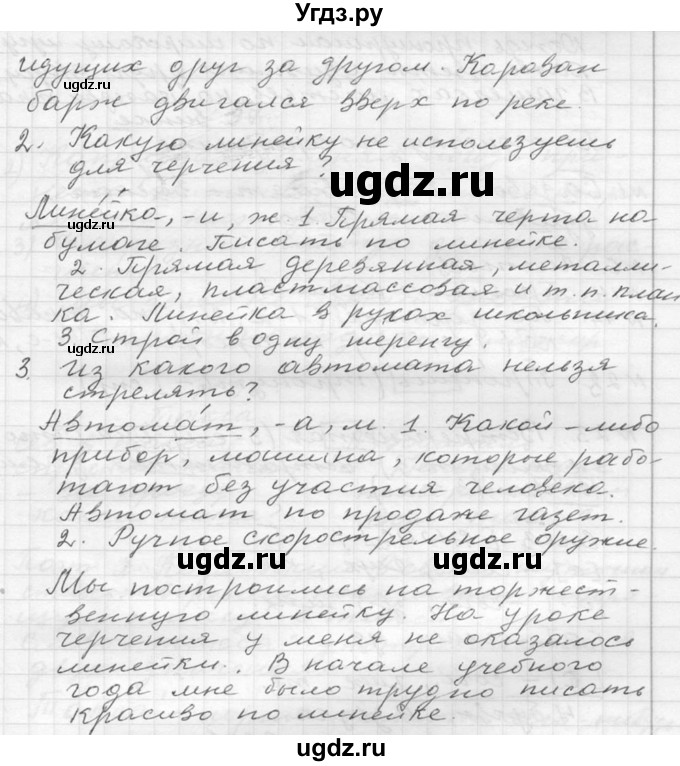 Угдз.ру
идущих друг за другом. Караван
барж двигался вверх по реке.
2. Какую линейку не используешь
для черчения?
ugdz.ru
Лине́йка, -и, ж 1. Прямая черта на
бумаге. Писать по линейке.
ugdz.ru
2. Прямая деревянная, металли-
ческая, пластмассовая и т. п. план
ка. Линейка в руках школьника.
3. Строй в одну шеренгу.
ugdz.ru
3. Из какого автомата нельзя
стрелять?
Автома́т, -а, м. 1. Какой-либо
прибор, машина, которые рабо-
тают без участия человека.
Автомат по продаже газет.
2. Ручное скорострельное оружие.
ugdz.ru ugdz.ru ugdz.ru
Мы построились на торжест-
венную линейку. На уроке
черчения у меня не оказалось
линейки. В начале учебного
года мне было трудно писать
ugdz.ru
красиво по линейке.
ugdz.ru
ugdz.ru